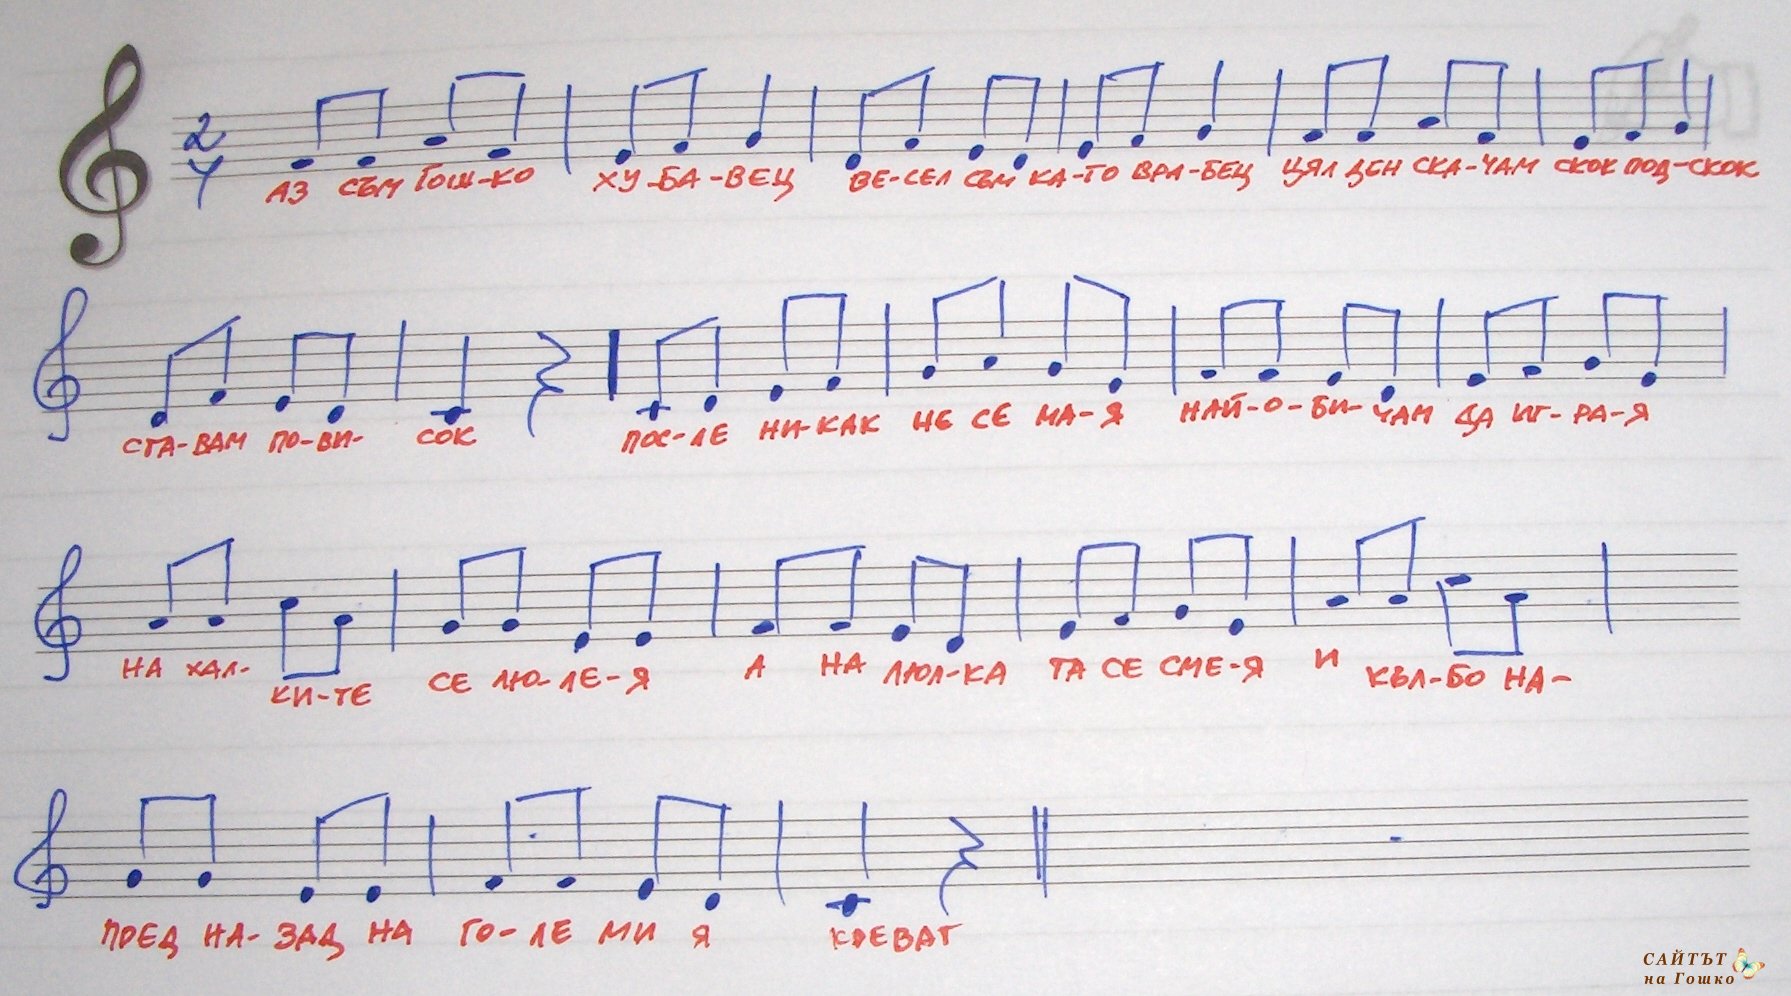 2
4
АЗ СЪМ ГОШ-КО ХУ-БА-ВЕЦ ВЕ-СЕЛ СЪМ КА-ТО ВРА-БЕЦ ЦЯЛ ДЕН СКА-ЧАМ СКОК ПОД-СКОК
СТА-ВАМ ПО-ВИ- СОК ПОС-ЛЕ НИ-КАК НЕ СЕ МА-Я НАЙ-О-БИ-ЧАМ ДА ИГ-РА-Я
НА ХАЛ- КИ-ТЕ СЕ ЛЮ-ЛЕ-Я А НА ЛЮЛ-КА ТА СЕ СМЕ-Я И КЪЛ-БО НА-
ПРЕД НА-ЗАД НА ГО-ЛЕ МИ Я КРЕВАТ
САЙТЪТ
на Гошко